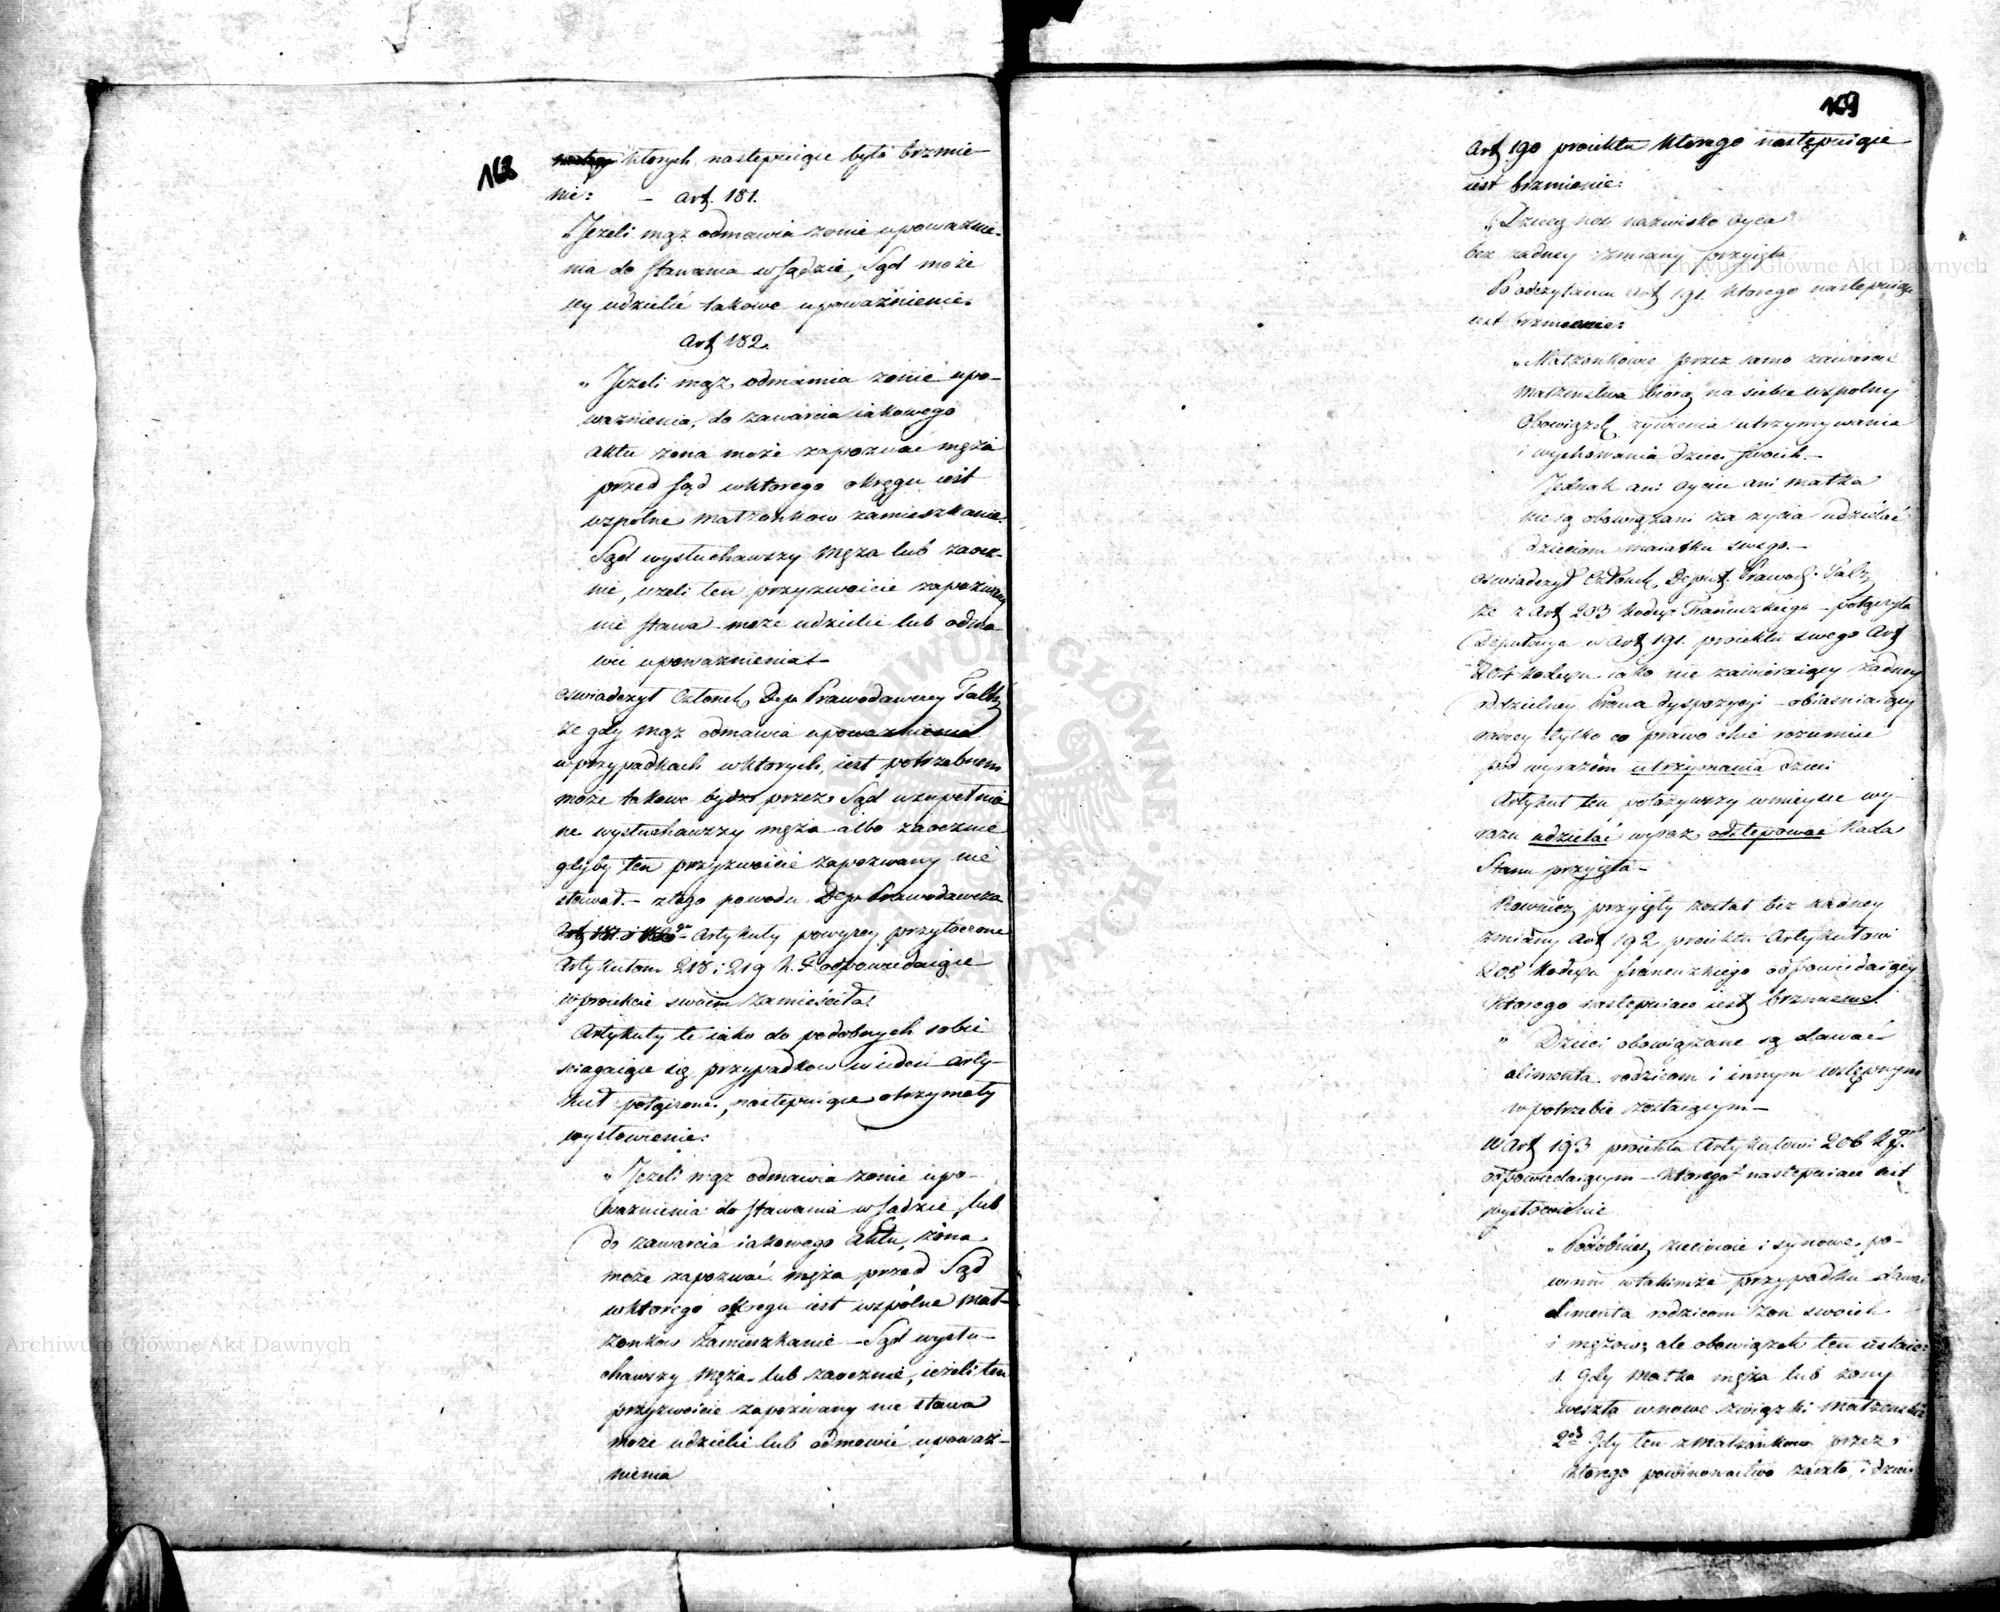 168
których następuiące było brzmie-
nie: – Art. 181.
„Jeżeli mąż odmawia żonie upoważnie-
nia do stawania w sądzie, Sąd może
iey udzielić takowe upoważnienie.
Art 182.
„Jeżeli mąż odmawia żonie upo-
ważnienia, do zawarcia iakowego
aktu żona może zapozwać męża
przed sąd w którego okręgu iest
wspólne małżonkow zamieszkanie.
Sąd wysłuchawszy męża lub zaocz-
nie, ieżeli ten przyzwoicie zapozwany
nie stawa może udzielić lub odmó-
wić upoważnienia –
oświadczył Członek Dep. Prawodawczey
że gdy mąż odmawia upoważnienia
w przypadkach w których iest potrzebnem
może takowe bydź przez Sąd uzupełnio
ne wysłuchawszy męża albo zaocznie
gdyby ten przyzwoicie zapozwany nie
stawał. – z tego powodu Dep. Prawodawcza
Art 181 i 182 Artykuły powyżey przytoczone
Artykułom 218 i 219 K. F. odpowiedaiące
w proiekcie swoim zamieściła.
Artykuły te iako do podobnych sobie
sciągaiące się przypadkow w ieden Arty-
kuł połączone, następuiące otrzymały
wysłowienie:
„Jeżeli mąż odmawia żonie upo-
ważnienia do stawania w sądzie lub
do zawarcia iakowego Aktu, żona
może zapozwać męża przed Sąd
w którego okregu iest wspólne mał-
żonkow zamieszkanie – Sąd wysłu-
chawszy męża lub zaocznie, ieżeli ten
przyzwoicie zapozwany nie stawa
może udzielić lub odmówić upoważ-
nienia
169
Art 190 proiektu którego następuiące
iest brzmienie:
„Dzieci nosi nazwisko Oyca"
bez żadney zmiany przyięta
Po odczytaniu Art 191. którego następuiące
iest brzmienie:
„Małżonkowie przez samo zawarcie
małżeństwa biorą na siebie wspólny
Obowiązek żywienia utrzymywania
i wychowania dzieci swoich –
Jednak ani oyciec ani matka
nie są obowiązani za życia udzielać
dzieciom maiątku swego. –
oświadczył Członek Deput. Prawod.
że z Art 203 Kodexu Francuzkiego połączyła
Deputacya w Art 191. proiektu swego Art
204 Kodexu iako nie zawieraiący żadney
oddzielney Prawa dyspozycyi – obiaśniaiący
raczey tylko co prawo chce rozumieć
pod wyrazem utrzymania dzieci
Artykuł ten położywszy w mieysce wy-
razu udzielać wyraz odstępować Rada
Stanu przyięła –
Rownież przyięty został bez żadney
zmiany Art 192 proiektu Artykułowi
205 Kodexu francuzkiego odpowiedaiący
którego następuiące iest brzmienie
„Dzieci obowiązane są dawać
alimenta rodzicom i innym wstępnym
w potrzebie zostaiącym –
W Art 193 proiektu Artykułowi 206 K. F.
odpowiedaiącym – którego następuiące iest
wysłowienie
„Podobnież zięciowie i synowe po-
winni w takimże przypadku dawać
alimenta rodzicom żon swoich
i mężów, ale obowiązek ten ustaie:
1. Gdy matka męża lub żony
weszła w nowe związki małżenskie
2o Gdy ten z małżonkow przez
którego powinowactwo zaszło, i dzieci
Archiwum Główne Akt Dawnych
Archiwum Główne Akt Dawnych